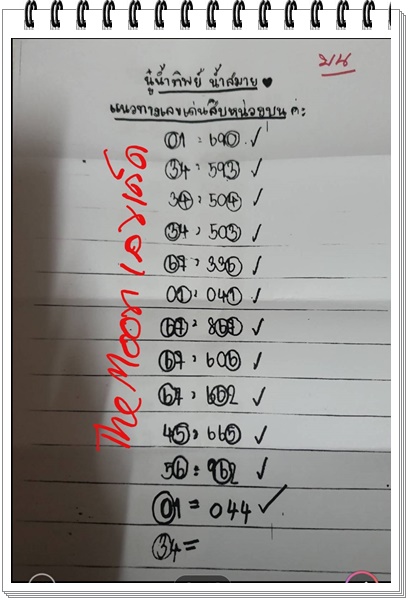 บน
ปู่น้ำทิพย์ น้ำสบาย ♥
แนวทางเลขเด่นสิบหน่วยบน ค่ะ
01 : 690 ✓
34 : 593 ✓
34 : 504 ✓
34 : 503 ✓
67 : 336 ✓
01 : 041 ✓
67 : 867 ✓
67 : 606 ✓
67 : 662 ✓
45 : 665 ✓
56 : 962 ✓
01 = 044 ✓
34 =
The Moon เลขเด็ด